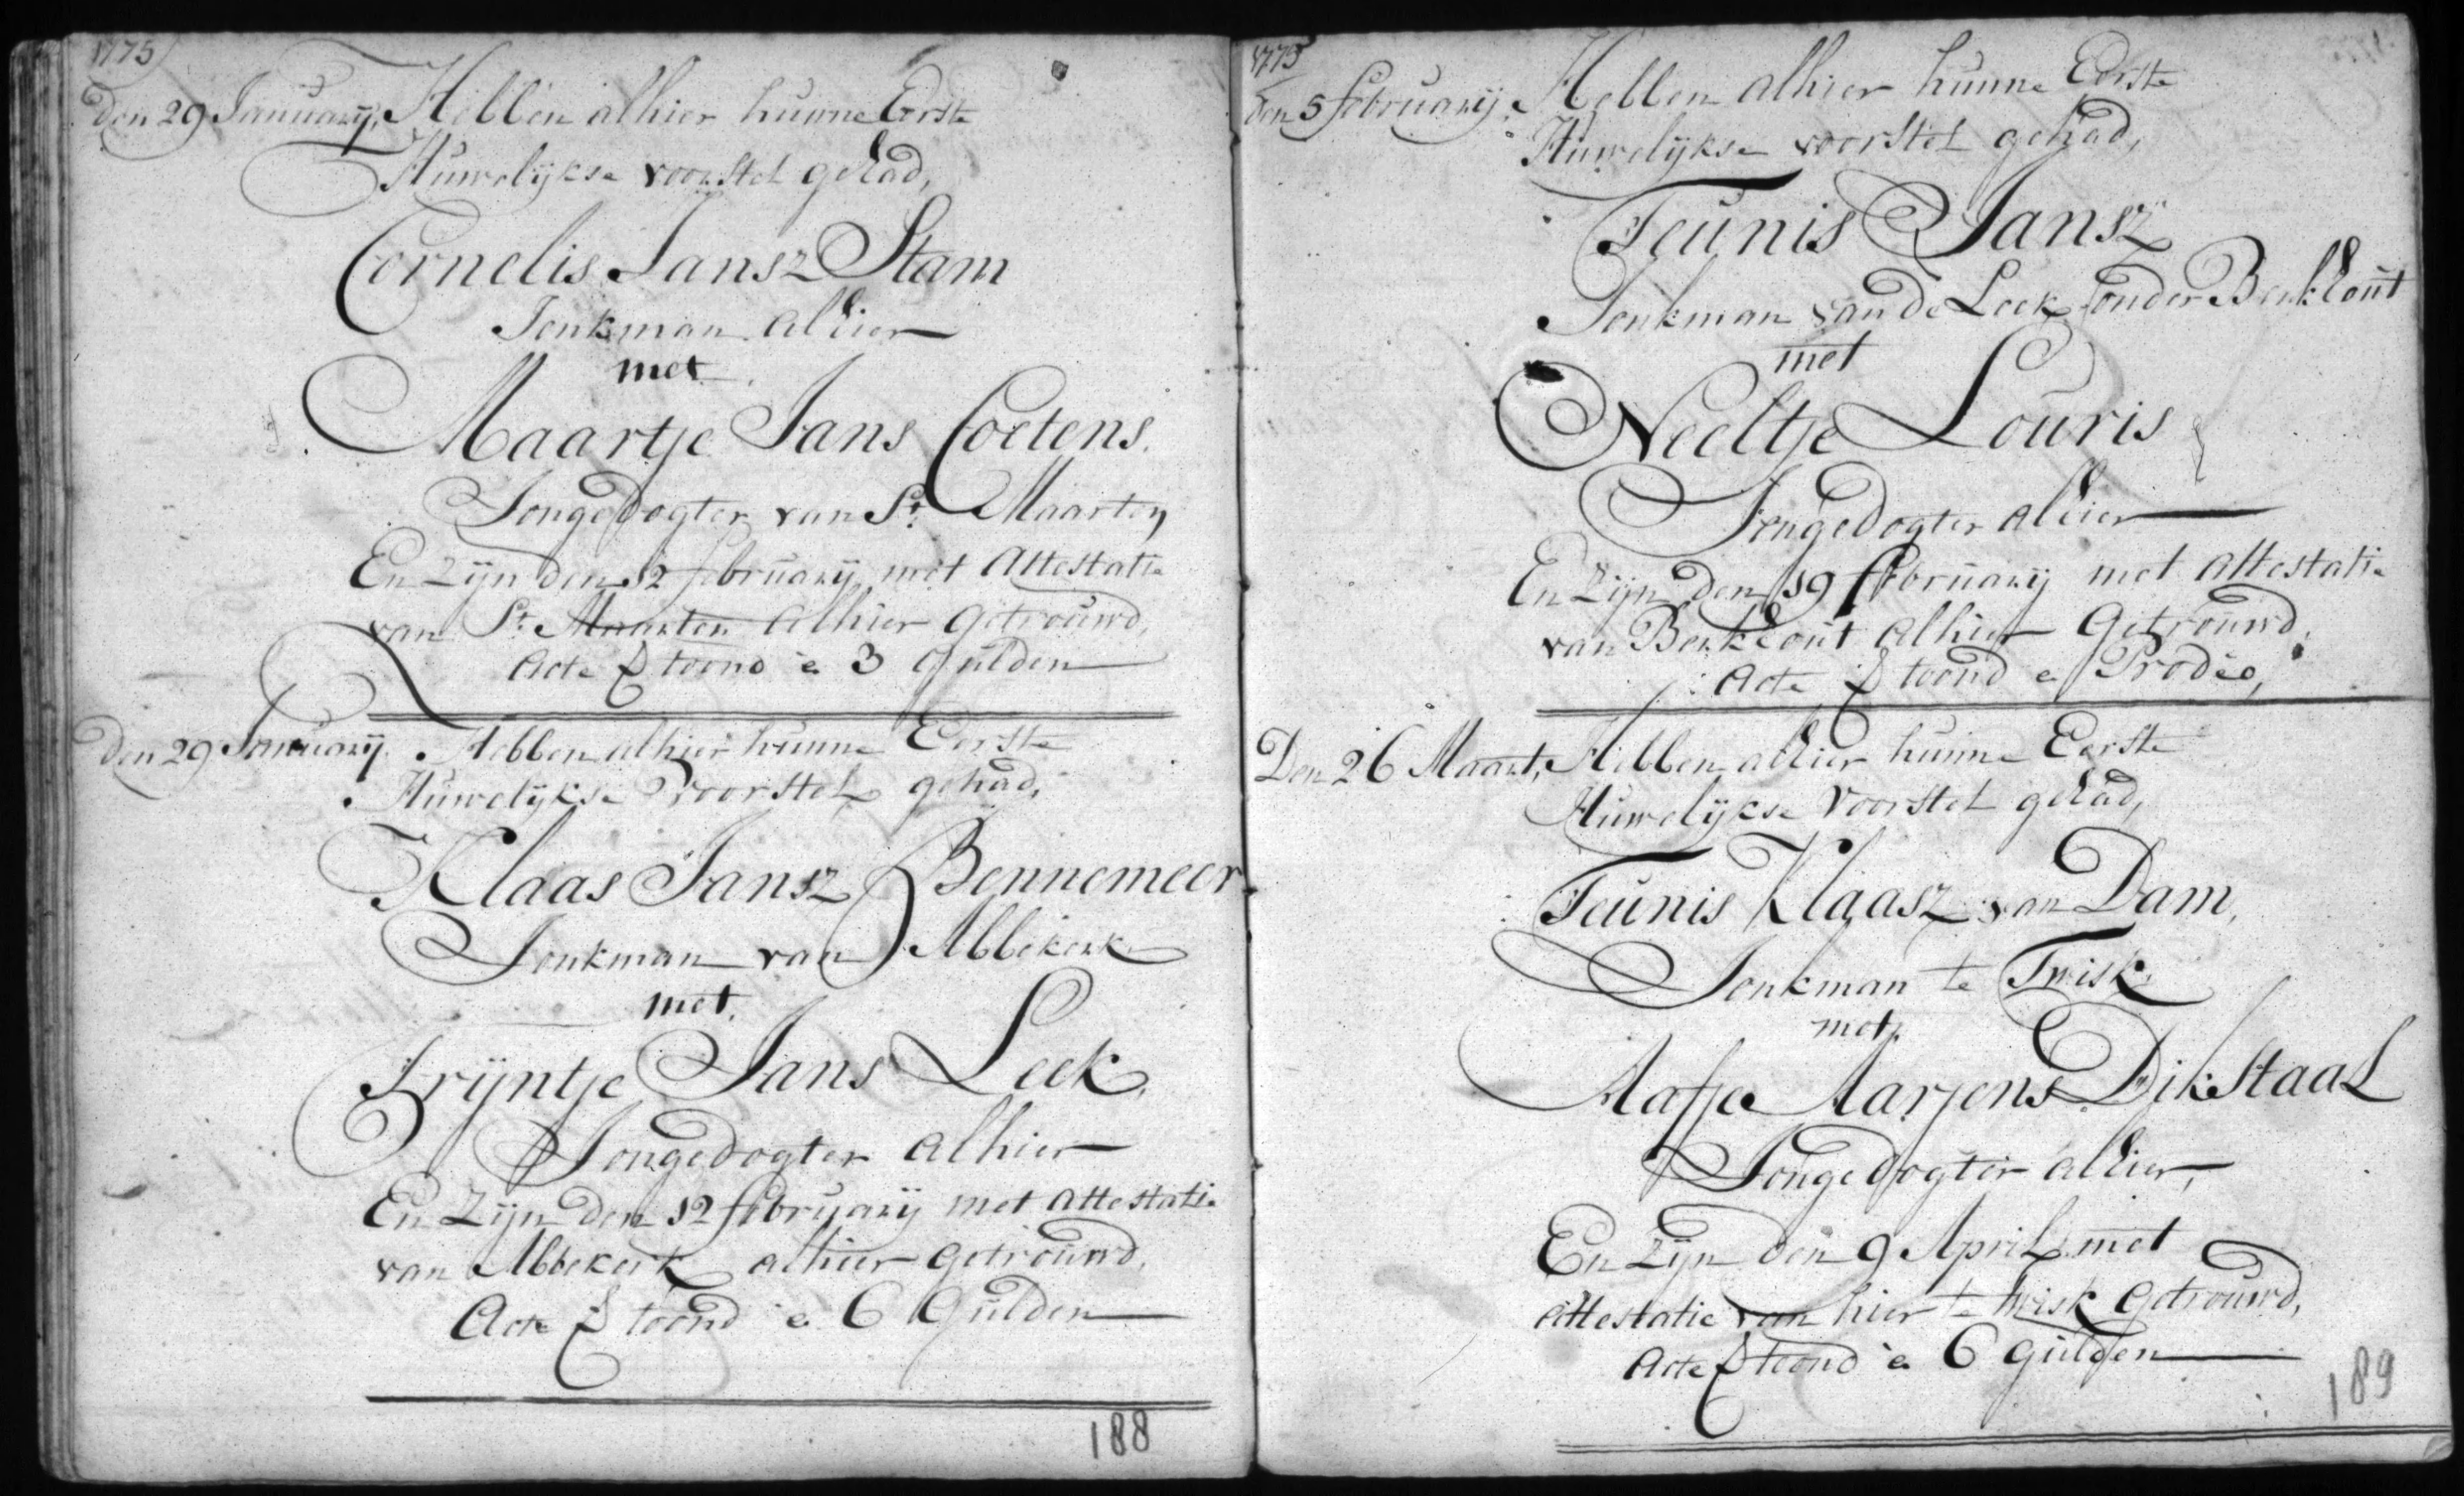 1775
Den 29 January, Hebben alhier hunne Eerste
Huwelijkse voorstel gehad,
Cornelis Jansz Stam
Jonkman alhier
met
Maartje Jans Coetens.
Jongedogter van St. Maarten
En zijn den 12 february met attestatie
van St. Maarten alhier getrouwd,
Acte toond à 3 Gulden
Den 29 January. Hebben alhier hunne Eerste
Huwelijkse voorstel gehad,
Klaas Jansz Bennemeer
Jonkman van Abbekerk
met
Trijntje Jans Leek,
Jongedogter alhier
En zijn den 12 february met attestatie
van Abbekerk alhier getrouwd,
Acte toond à 6 Gulden
188
1775
Den 5 february, Hebben alhier hunne Eerste
Huwelijkse voorstel gehad,
Teunis Jansz
Jonkman van de Leek onder Berkhout
met
Neeltje Louris
Jongedogter alhier
En zijn den 19 february met attestatie
van Berkhout alhier Getrouwd,
Acte toond à Prodeo,
Den 26 Maart, Hebben alhier hunne Eerste
Huwelijkse voorstel gehad,
Teunis Klaasz van Dam,
Jonkman te Twisk
met
Aafje Aarjens Dikstaal
Jongedogter alhier,
En zijn den 9 April met
attestatie van hier te twisk Getrouwd,
Acte toond à 6 gulden
189